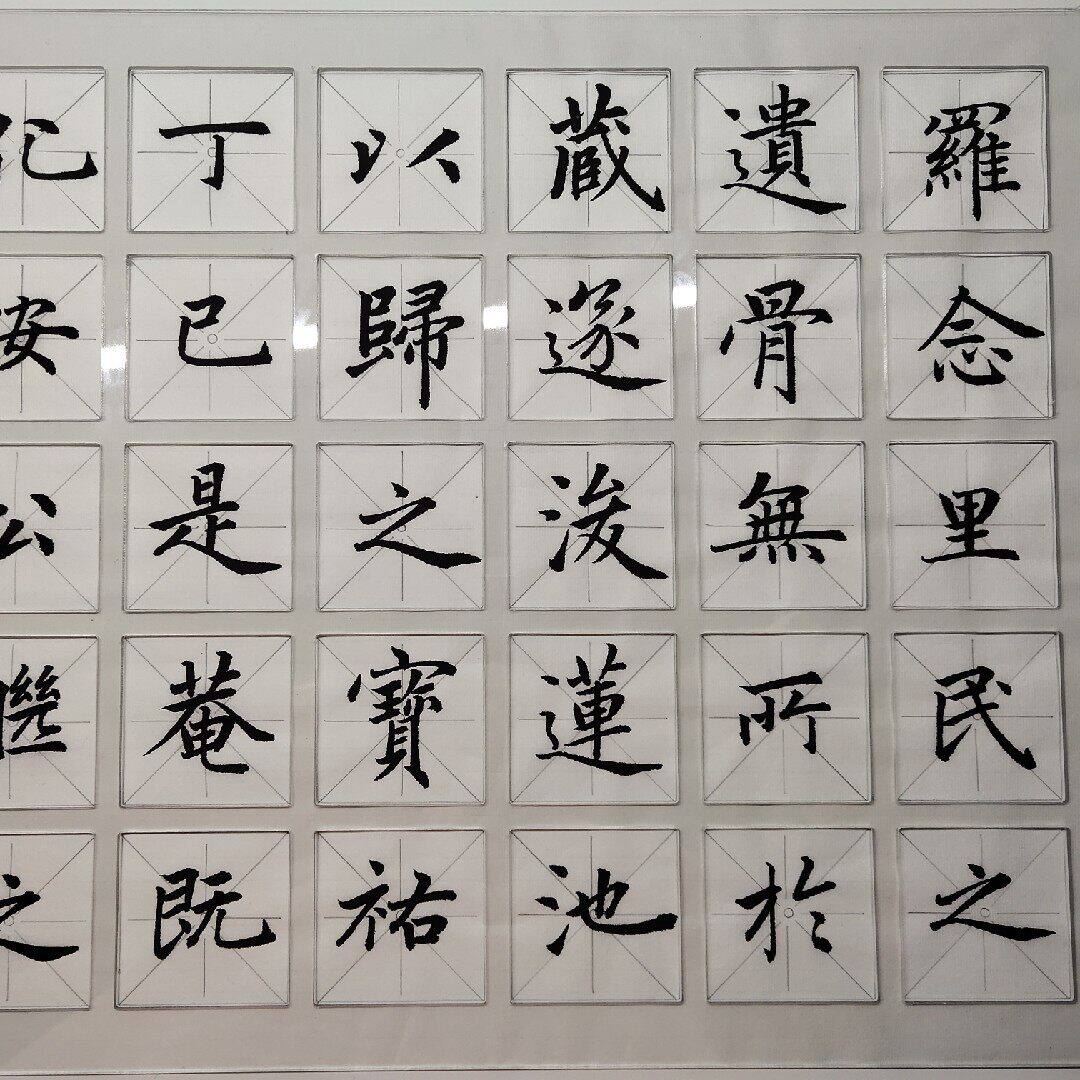 羅念里民之
遺骨無所於
藏遂浚蓮池
以歸之寶祐
丁巳是菴既
安公之